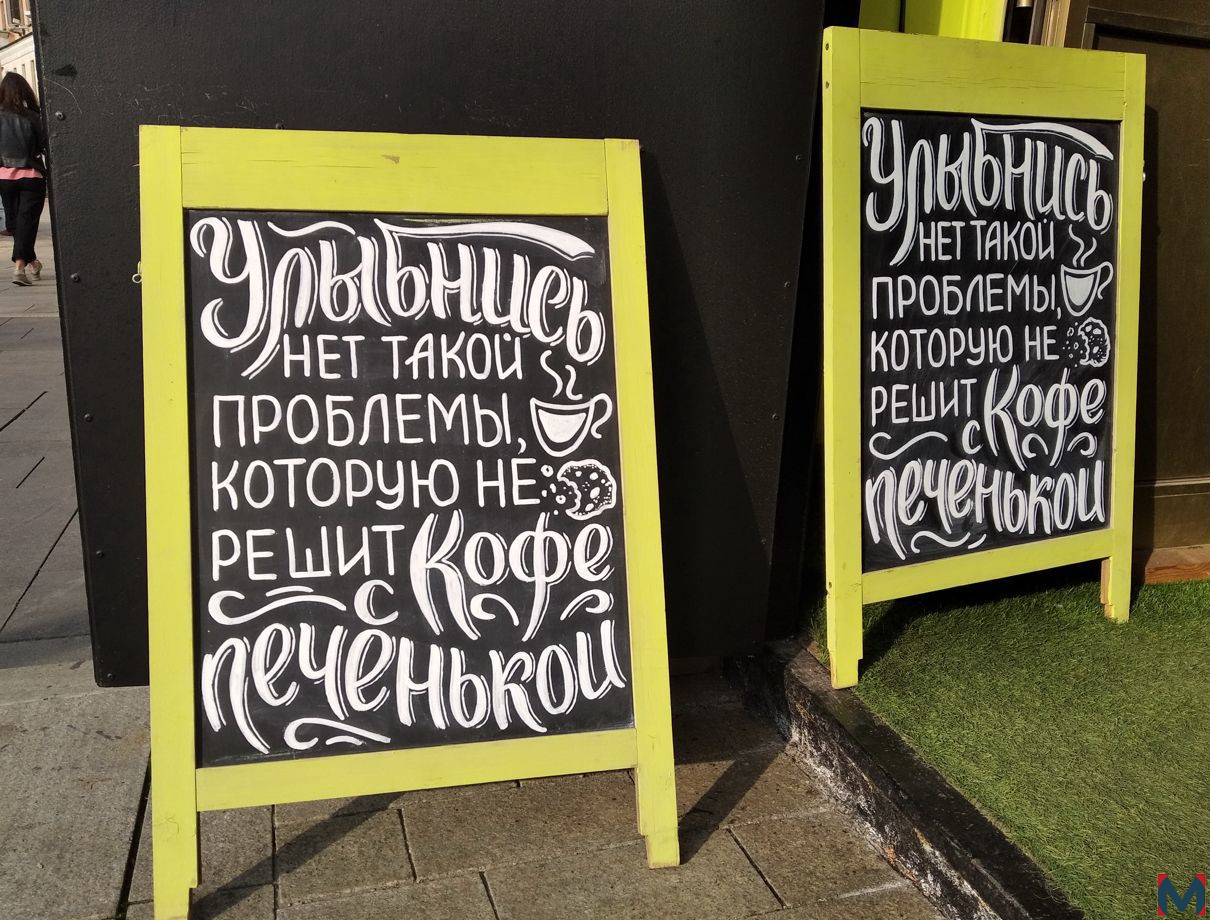 Улыбнись
НЕТ ТАКОЙ
ПРОБЛЕМЫ,
КОТОРУЮ НЕ
РЕШИТ Кофе
с
печенькой
Улыбнись
НЕТ ТАКОЙ
ПРОБЛЕМЫ,
КОТОРУЮ НЕ
РЕШИТ Кофе
с
печенькой
M